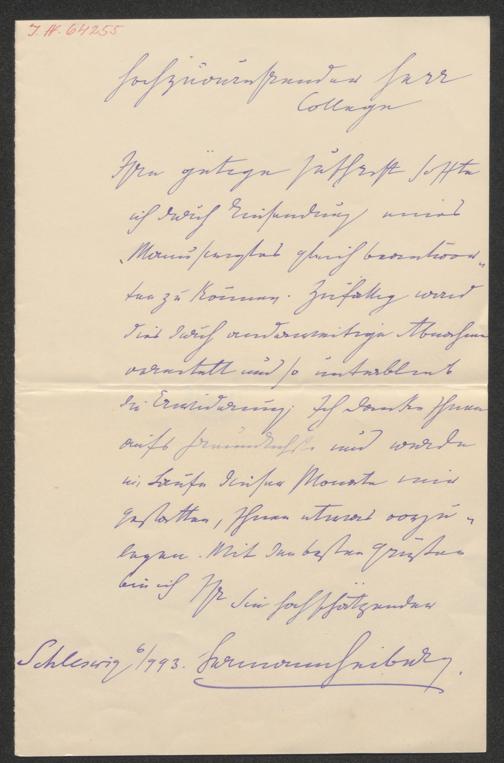 J. N. 64255
Hochzuverehrender Herr
College
Ihre gütige Zuschrift hoffte
ich durch Einsendung eines
Manuscriptes gleich beantwor-
ten zu können. Zufällig ward
dies durch anderweitige Abnahme
vereitelt und so unterblieb
die Erwiderung. Ich danke Ihnen
aufs freundlichste und werde
im Laufe dieser Monate mir
gestatten, Ihnen etwas vorzu-
legen. Mit den besten Grüßen
bin ich Ihr Sie hochschätzender
Schleswig 6/993. Hermann Heiberg.